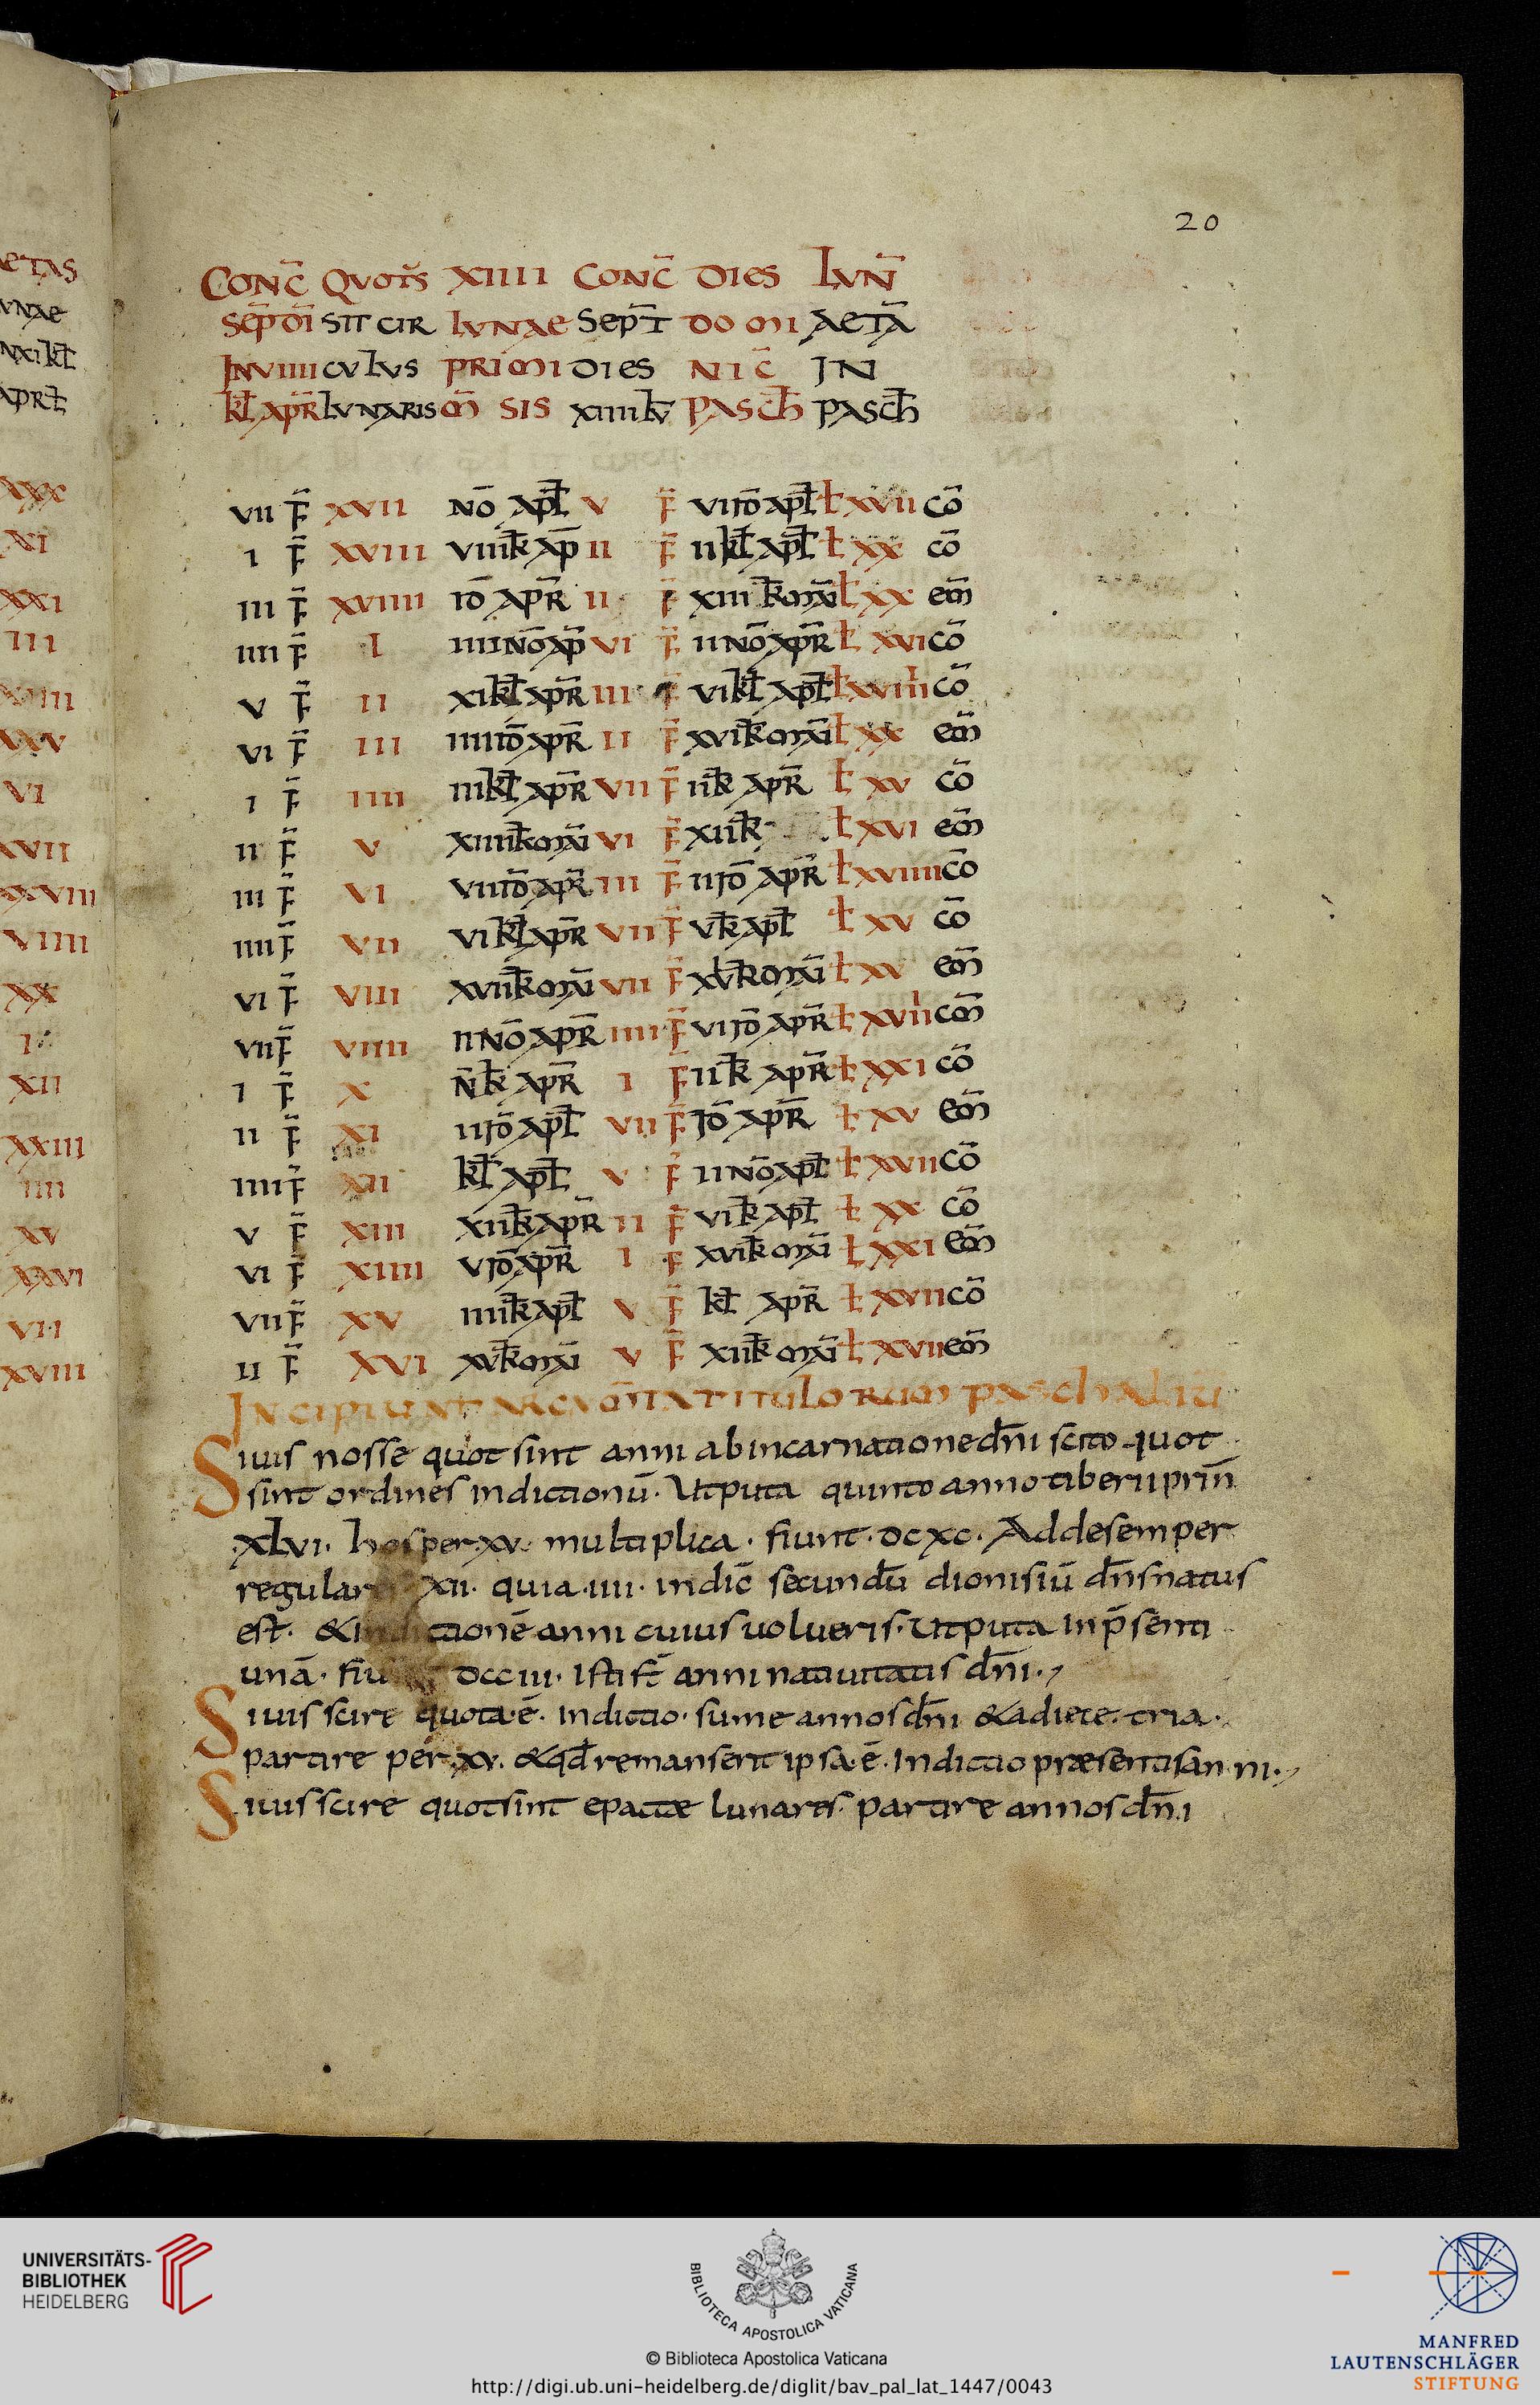 20
CONC̄ QVOTS̄ XIIII CONC̄ DIES LVN̄
SEP̄ DI SIT CIR LVNAE SEPT̄ DOMI AETĀ
INVIIII CVLVS PRIMI DIES NIC̄ IN
kƚ APR̄ LVNARIS M̄ SIS XIIII LV̄ PASCH̄ PASCH̄
VII F̄ XVII NŌ APƚ V F̄ VI IDŌ APƚ ƚ XVII CŌ
I F̄ XVIII VIIII k AP̄ II F̄ II kƚ APƚ ƚ XX CŌ
III F̄ XVIIII IDŌ APR̄ II F̄ XIII k MAI ƚ XX EM̄
IIII F̄ I IIII NŌ AP̄ VI F̄ II NŌ APR̄ ƚ XVI CŌ
V F̄ II XI kƚ APR̄ III VI kƚ APƚ ƚ XVIIII CŌ
VI F̄ III IIII IDŌ APR̄ II F̄ XVI k MAI ƚ XX EM̄
I F̄ IIII III kƚ APR̄ VII F̄ II k APR̄ ƚ XV CŌ
II F̄ V XIIII k MAI VI F̄ XII k ƚ XVI EM̄
III F̄ VI VII IDŌ APR̄ III F̄ II IDŌ APR̄ ƚ XVIIII CŌ
IIII F̄ VII VI kƚ APR̄ VII F̄ V k APƚ ƚ XV CŌ
VI F̄ VIII XVII k MAI VII F̄ XV k MAI ƚ XV EM̄
VII F̄ VIIII II NŌ APR̄ IIII F̄ VI IDŌ APR̄ ƚ XVIII COM̄
I F̄ X VIIII k APR̄ I F̄ II k APR̄ ƚ XXI CŌ
II F̄ XI II IDŌ APƚ VII F̄ IDŌ APR̄ ƚ XV EM̄
IIII F̄ XII kƚ APƚ V F̄ II NŌ APƚ ƚ XVII CŌ
V F̄ XIII XII k APR̄ II F̄ VI k APƚ ƚ XX CŌ
VI F̄ XIIII V IDŌ APR̄ I F̄ XVI k MAI ƚ XXI EM̄
VII F̄ XV IIII k APƚ V F̄ kƚ APR̄ ƚ XVII CŌ
II F̄ XVI XV k MAI V F̄ XII k MAI ƚ XVII EM̄
INCIPIUNT ARGUM̄TA TITULORUM PASCHALIŪ
Siuis nosse quot sint anni ab incarnatione dn̄i scito quot
sint ordines indictionū. Utputa quinto anno tiberii prin̄
xlvi. hos per xv. multiplica. fiunt. dcxc. Adde semper
regulares xii. quia .iiii. indic̄ secundū dionisiū dn̄s natus
est̄. & indictionē anni cuius uolueris. Utputa in p̄senti
unā. fiunt dcciii. Isti st̄ anni natiuitatis dn̄i.
Siuis scire quota ē. indictio. sume annos dn̄i & adiece. tria.
partire per xv. & qd̄ remanserit ipsa. ē. Indictio præsentis anni.
Siuis scire quot sint epactæ lunares. partire annos dn̄i
AETAS
VNAE
NXI kƚ
APRƚ
XXX
XI
XXI
III
XIIII
XXV
VI
XVII
XXVIII
VIIII
XX
I
XII
XXIII
IIII
XV
XXVI
VII
XVIII
UNIVERSITÄTS-
BIBLIOTHEK
HEIDELBERG
BIBLIOTECA APOSTOLICA VATICANA
© Biblioteca Apostolica Vaticana
http://digi.ub.uni-heidelberg.de/diglit/bav_pal_lat_1447/0043
MANFRED
LAUTENSCHLÄGER
STIFTUNG